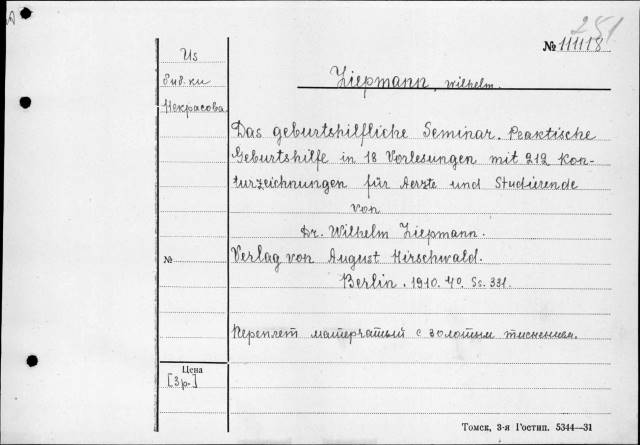 251
№ 11118
Из
биб.ки
Некрасова.
Ziepmann, Wilhelm.
Das geburtshilfliche Seminar. Praktische
Geburtshilfe in 18 Vorlesungen mit 212 Kon-
turzeichnungen für Aerzte und Studierende
von
Dr. Wilhelm Ziepmann.
№
Verlag von August Hirschwald.
Berlin. 1910. 4º. Ss. 331.
Переплет матерчатый с золотым тиснением.
Цена
[3 р.]
Томск, 3-я Гостип. 5344—31